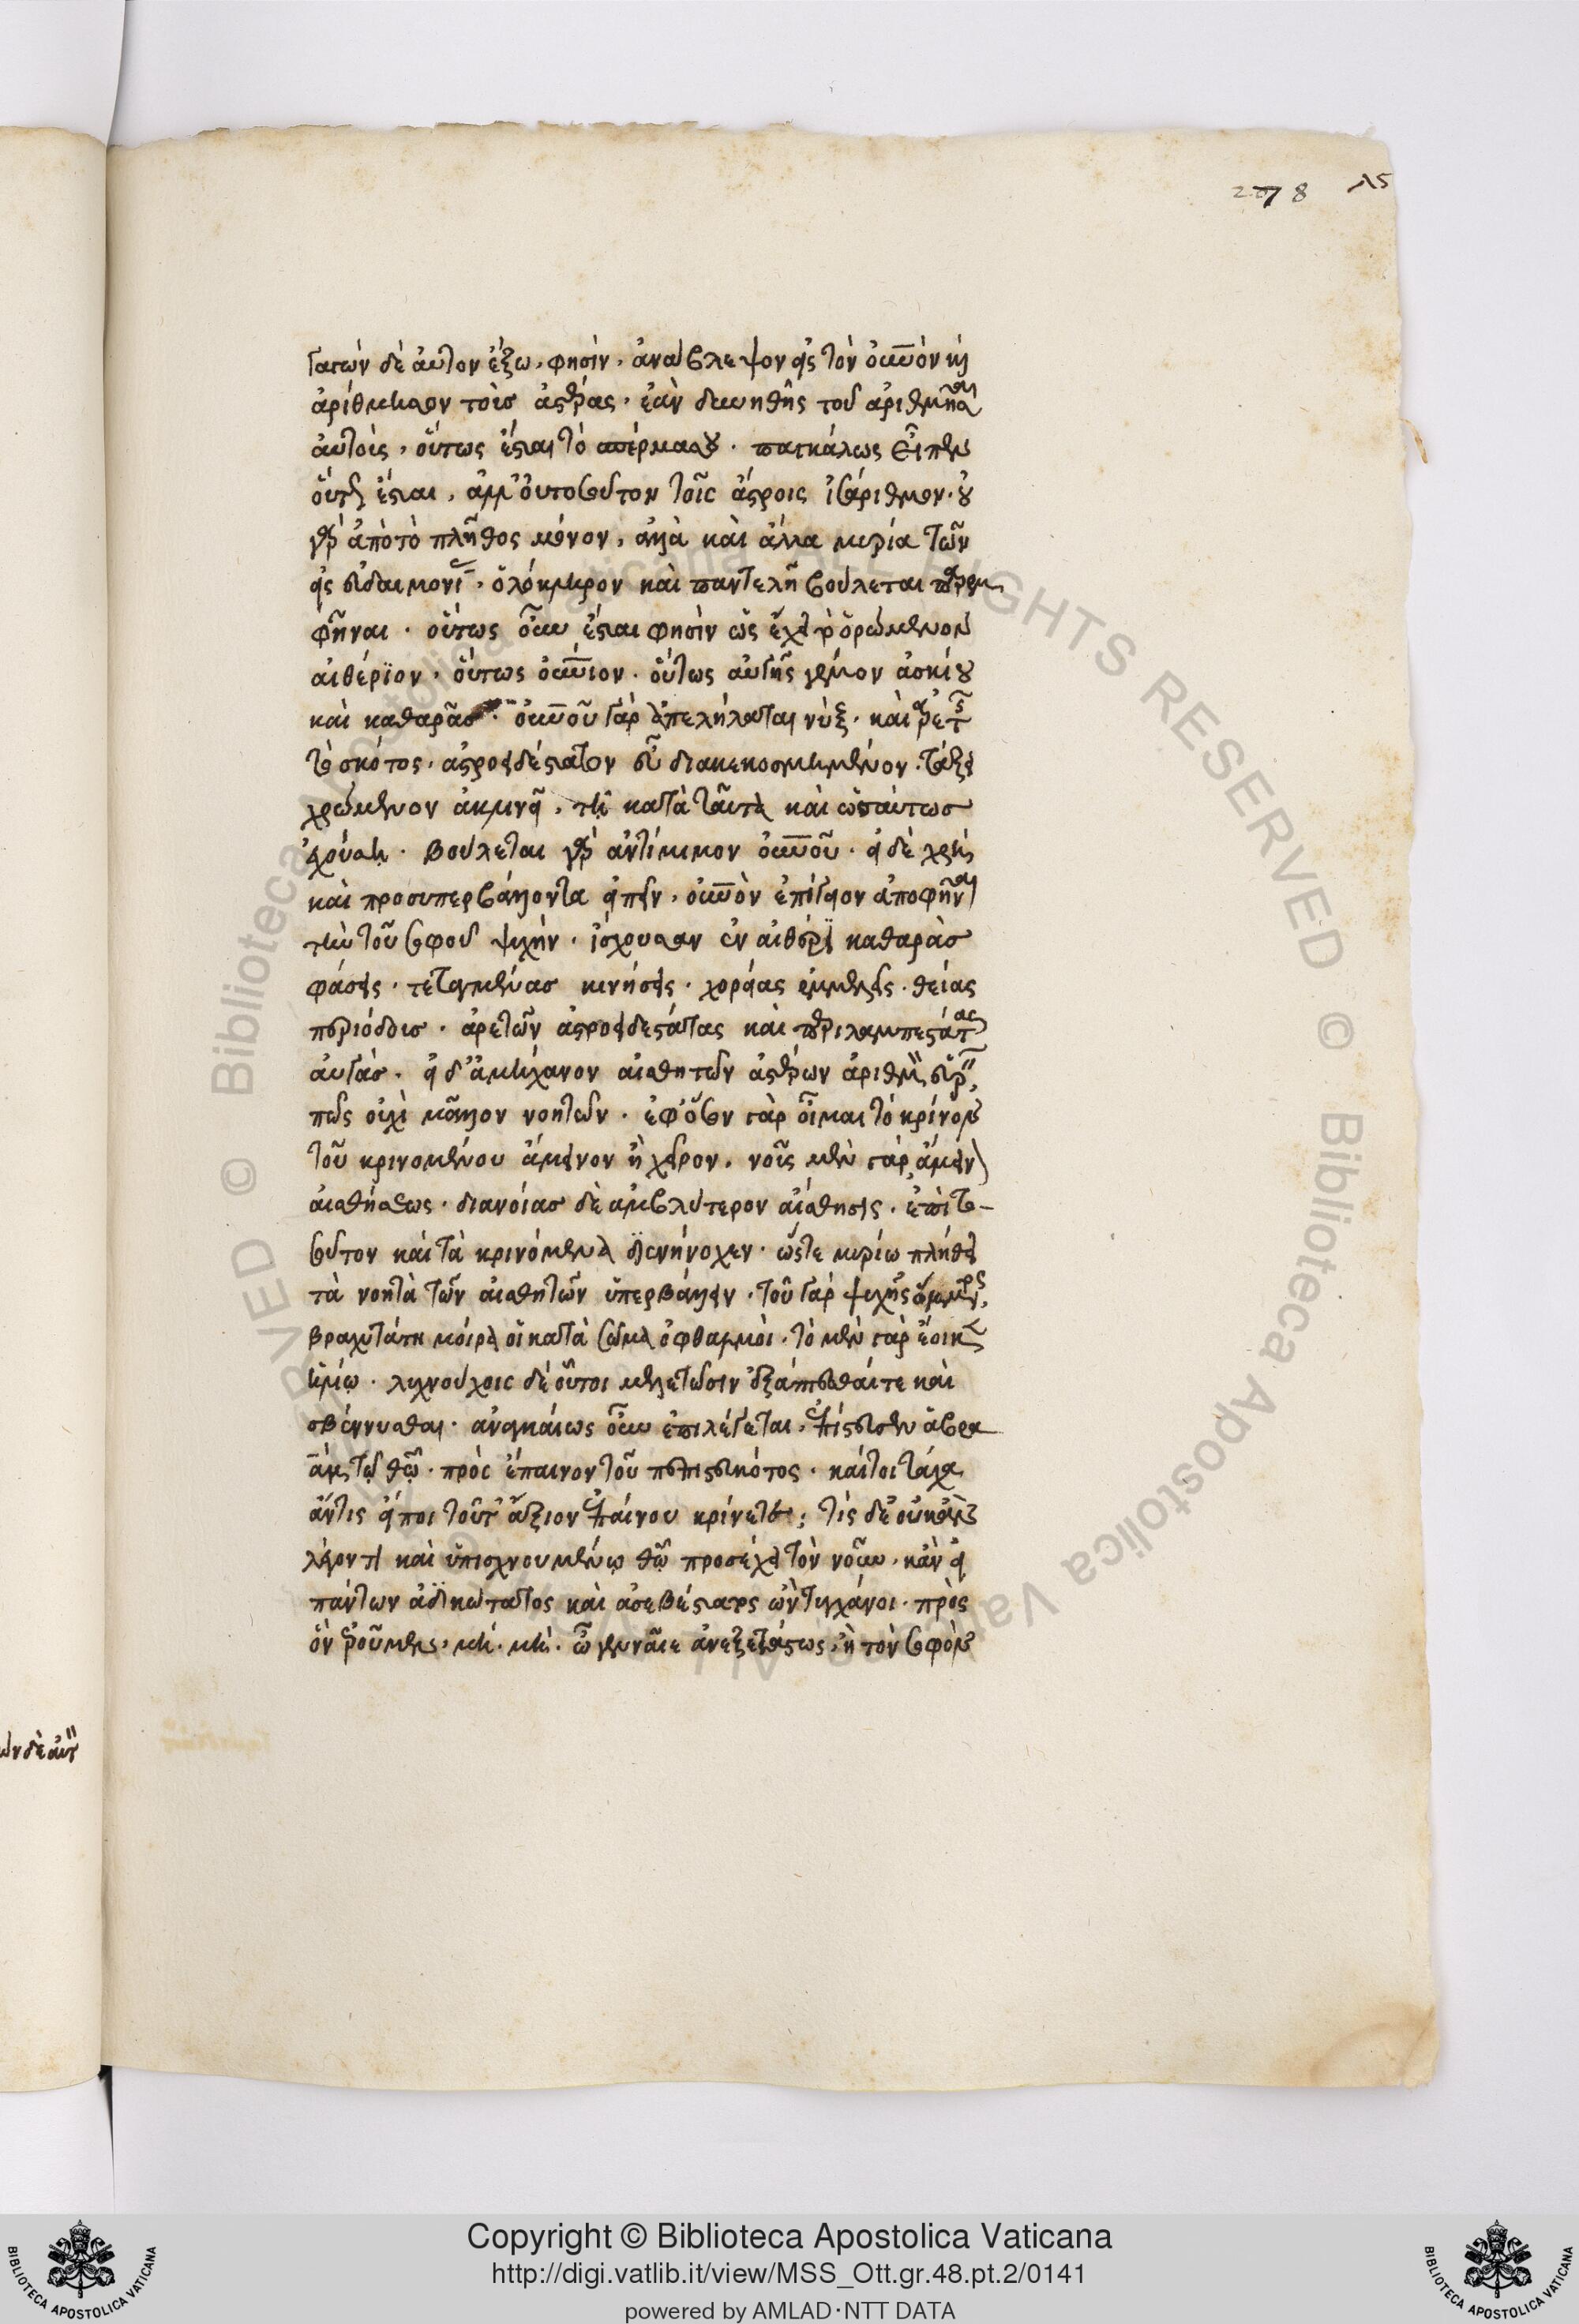 278 λς
γαγὼν δὲ αὐτὸν ἔξω, φησὶν, ἀνάβλεψον εἰς τὸν οὐνὸν καὶ
ἀρίθμησον τοὺς ἀστέρας, ἐὰν δυνηθῇς τοῦ ἀριθμῆσαι
αὐτοὺς, οὕτως ἔσται τὸ σπέρμα σου. παγκάλως εἶπεν
οὕτως ἔσται, ἀλλ' οὐ τοσοῦτον τοῖς ἄστροις ἰσάριθμον. οὐ
γὰρ ἀπὸ τὸ πλῆθος μόνον, ἀλλὰ καὶ ἄλλα μυρία τῶν
εἰς εὐδαιμονίαν, ὁλόκληρον καὶ παντελῆ βούλεται παρεμ
φῆναι. οὕτως οὖν ἔσται φησὶν ὡς ἔχει τὸ ὁρώμενον
αἰθέριον, οὕτως οὐνιον. οὕτως αὐγῆς γέμον ἀσκίου
καὶ καθαρᾶς. οὐνοῦ γὰρ ἀπελήλαται νὺξ. καὶ αἰθέρος
τὸ σκότος, ἀστροειδέστατον εὖ διακεκοσμημένον. τάξει
χρώμενον ἀκλινεῖ, τῇ κατὰ ταὐτὰ καὶ ὡσαύτως
ἐχούσῃ. βούλεται γὰρ ἀντίμιμον οὐνοῦ. εἰ δὲ χρὴ
καὶ προσυπερβάλλοντα εἰπεῖν, οὐνὸν ἐπίγειον ἀποφῆναι
τὴν τοῦ σοφοῦ ψυχὴν. ἴσχουσαν ἐν αἰθέρι καθαρὰς
φάσεις. τεταγμένας κινήσεις. χορείας ἐμμελεῖς. θείας
περιόδους. ἀρετῶν ἀστροειδεστάτας καὶ περιλαμπεστάτας
αὐγάς. εἰ δ' ἀμήχανον αἰσθητῶν ἀστέρων ἀριθμὸν εὑρεῖν,
πῶς οὐχὶ μᾶλλον νοητῶν. ἐφ' ὅσον γὰρ οἶμαι τὸ κρίνον
τοῦ κρινομένου ἄμεινον ἢ χεῖρον. νοῦς μὲν γὰρ ἄμεινον
αἰσθήσεως. διανοίας δὲ ἀμβλύτερον αἴσθησις. ἐπὶ το-
σοῦτον καὶ τὰ κρινόμενα διενήνοχεν. ὥστε μυρίω πλήθει
τὰ νοητὰ τῶν αἰσθητῶν ὑπερβάλλειν. τοῦ γὰρ ψυχῆς ὄμματος,
βραχυτάτη μοῖρα οἱ κατὰ σῶμα ὀφθαλμοὶ. τὸ μὲν γὰρ ἔοικεν
ἡλίῳ. λυχνούχοις δὲ οὗτοι μελετῶσιν ἐξάπτεσθαί τε καὶ
σβέννυσθαι. ἀναγκαίως οὖν ἐπιλέγεται, ἐπίστευσεν ἅβρα
ὰμ τῷ θῶ. πρὸς ἔπαινον τοῦ πεπιστευκότος. καίτοι τάχα
ἄν τις εἴποι τοῦτ' ἄξιον ἐπαίνου κρίνετε; τίς δὲ οὐκ ἂν
λέγοντι καὶ ὑπισχνουμένῳ θῶ προσέχει τὸν νοῦν, κἂν εἰ
πάντων ἀδικώτατος καὶ ἀσεβέστατος ὢν τυγχάνοι. πρὸς
ὃν ἐροῦμεν, μὴ. μὴ. ὦ γενναῖε ἀνεξετάστως, ἢ τὸν σοφὸν
ὼν δὲ αὐτ
Copyright © Biblioteca Apostolica Vaticana
http://digi.vatlib.it/view/MSS_Ott.gr.48.pt.2/0141
powered by AMLAD·NTT DATA